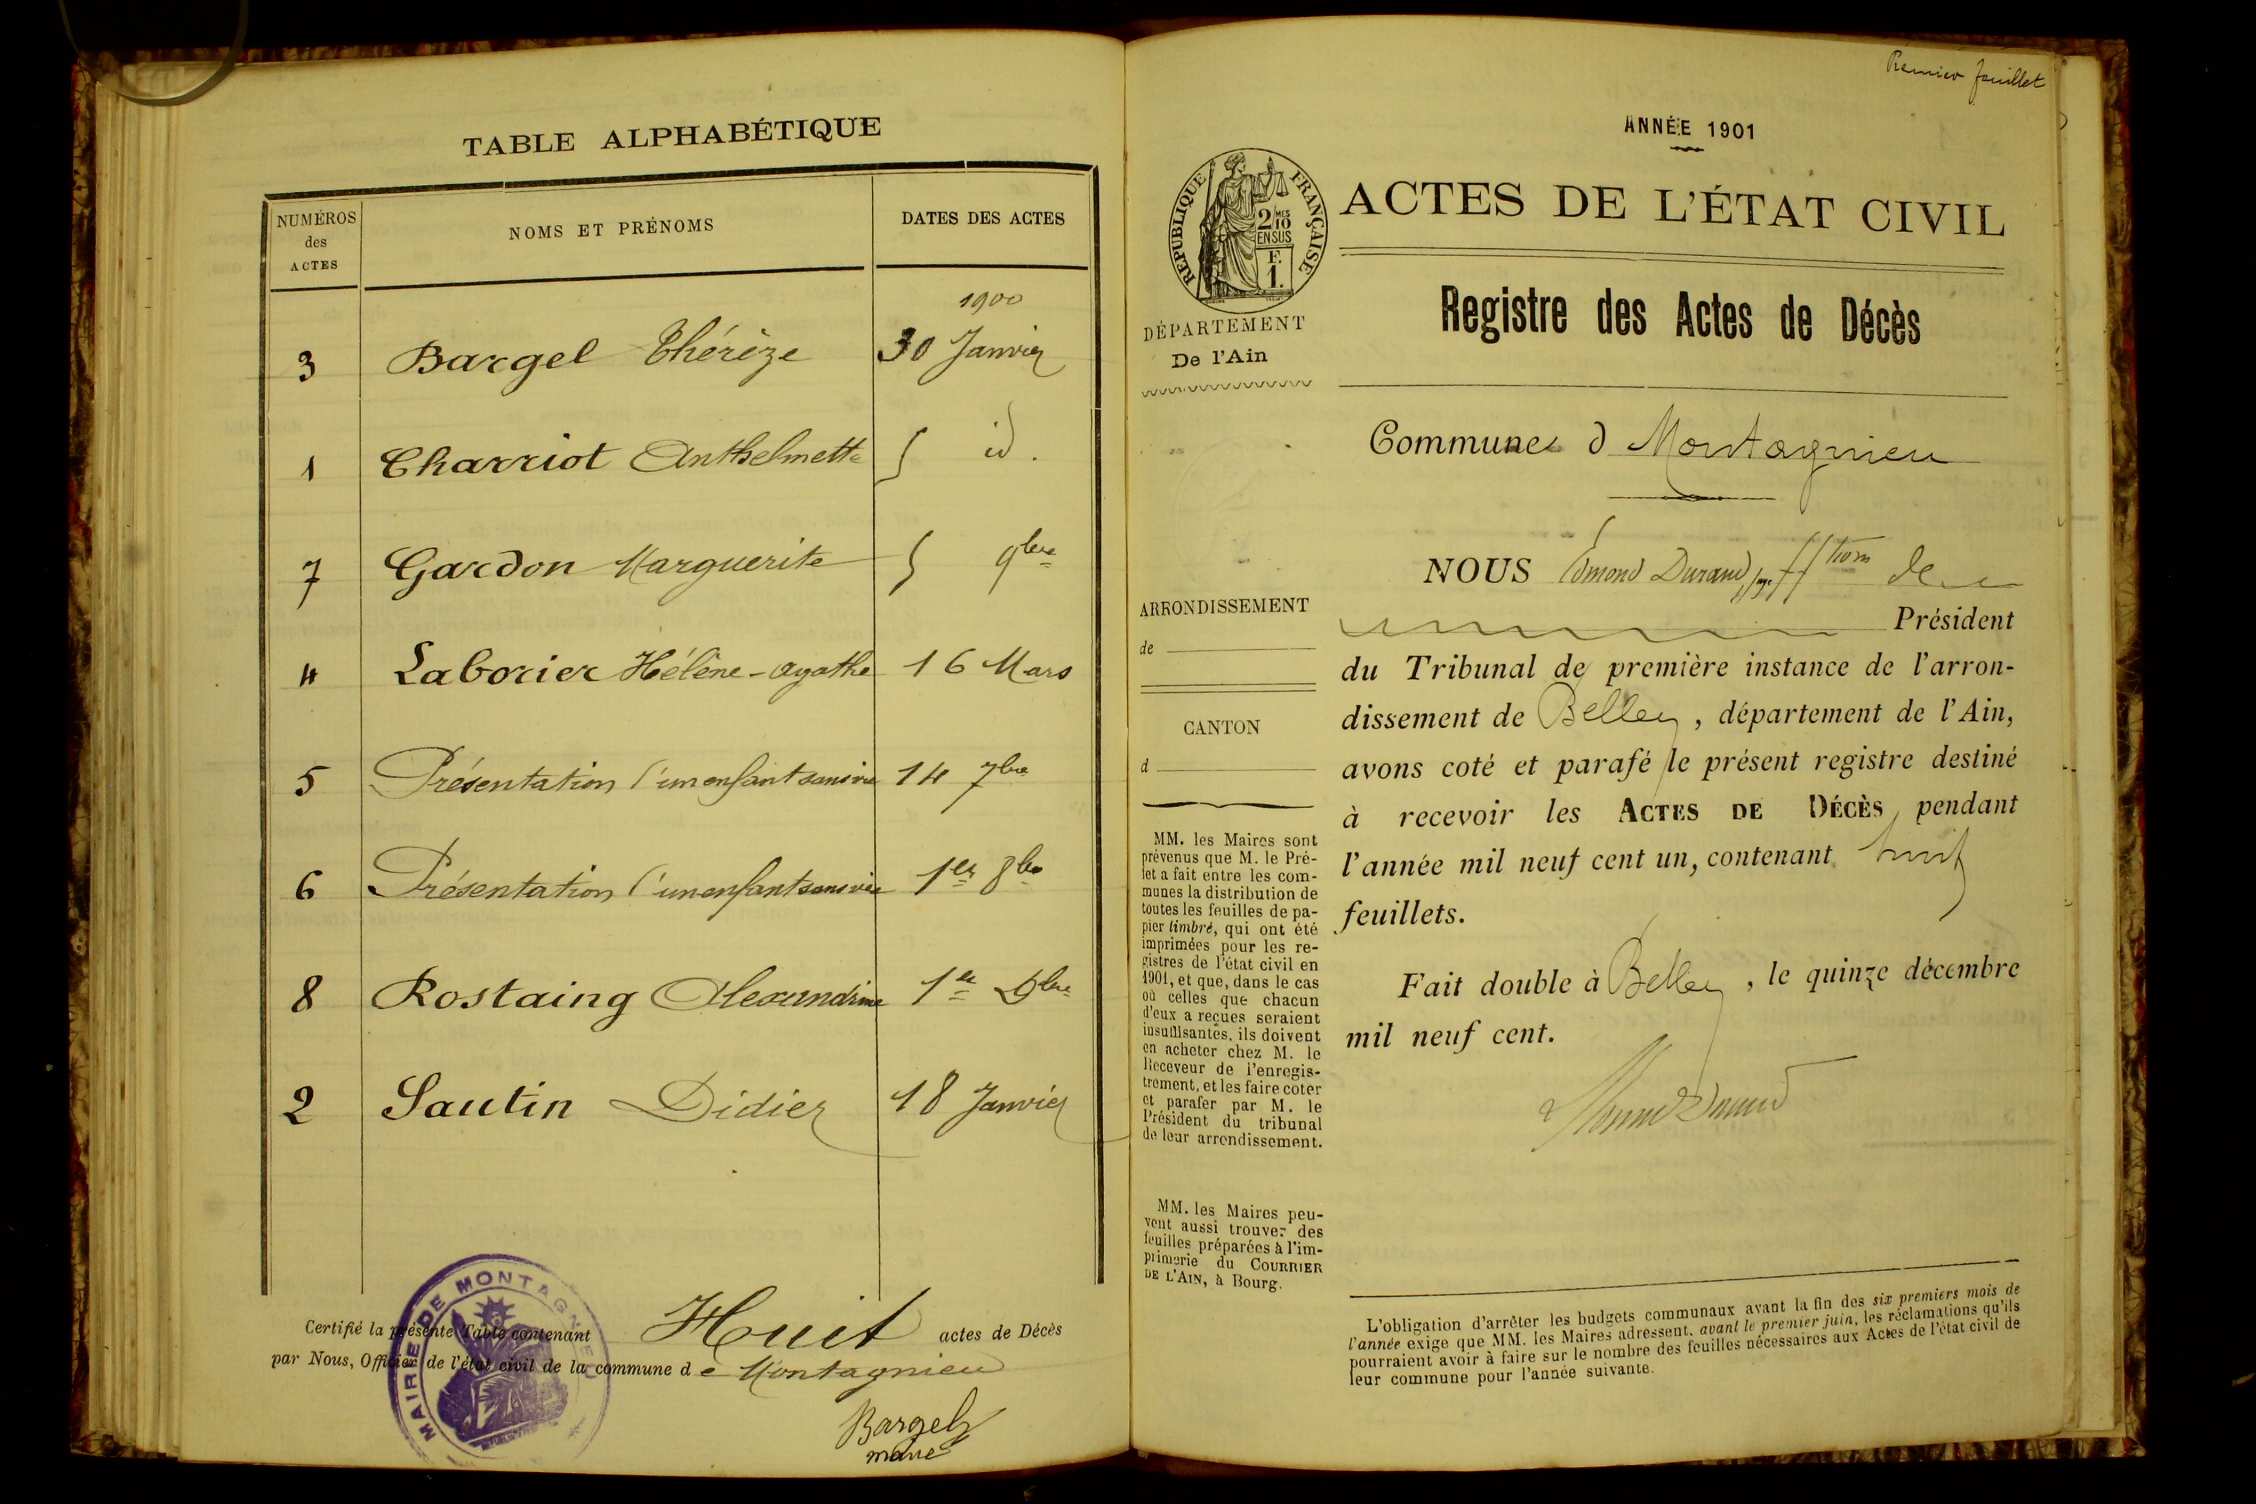 TABLE ALPHABÉTIQUE
NUMÉROS
des
ACTES
NOMS ET PRÉNOMS
DATES DES ACTES
1900
3 Bargel Thérèze 30 Janvier
1 Charriot Anthelmette 5 id.
7 Gardon Marguerite 5 9bre
4 Laborier Hélène-Agathe 16 Mars
5 Présentation d'un enfant sans vie 14 7bre
6 Présentation d'un enfant sans vie 1er 8bre
8 Rostaing Alexandrine 1er Dbre
2 Sautin Didier 18 Janvier
Certifié la présente Table contenant Huit actes de Décès
par Nous, Officier de l'état civil de la commune de Montagnieu
MAIRIE DE MONTAGNIEU
Bargel
maire
Premier feuillet
ANNÉE 1901
RÉPUBLIQUE FRANÇAISE
2 MES
10
EN SUS
F.
1.
DÉPARTEMENT
De l'Ain
ACTES DE L'ÉTAT CIVIL
Registre des Actes de Décès
Commune d Montagnieu
ARRONDISSEMENT
de
CANTON
d
MM. les Maires sont
prévenus que M. le Pré-
fet a fait entre les com-
munes la distribution de
toutes les feuilles de pa-
pier timbré, qui ont été
imprimées pour les re-
gistres de l'état civil en
1901, et que, dans le cas
où celles que chacun
d'eux a reçues seraient
insuffisantes, ils doivent
en acheter chez M. le
Receveur de l'enregis-
trement, et les faire coter
et parafer par M. le
Président du tribunal
de leur arrondissement.
MM. les Maires peu-
vent aussi trouver des
feuilles préparées à l'im-
primerie du COURRIER
DE L'AIN, à Bourg.
NOUS Edmond Durand, juge ff tions de
Président
du Tribunal de première instance de l'arron-
dissement de Belley, département de l'Ain,
avons coté et parafé le présent registre destiné
à recevoir les ACTES DE DÉCÈS pendant
l'année mil neuf cent un, contenant huit
feuillets.
Fait double à Belley, le quinze décembre
mil neuf cent.
Edmond Durand
L'obligation d'arrêter les budgets communaux avant la fin des six premiers mois de
l'année exige que MM. les Maires adressent, avant le premier juin, les réclamations qu'ils
pourraient avoir à faire sur le nombre des feuilles nécessaires aux Actes de l'état civil de
leur commune pour l'année suivante.